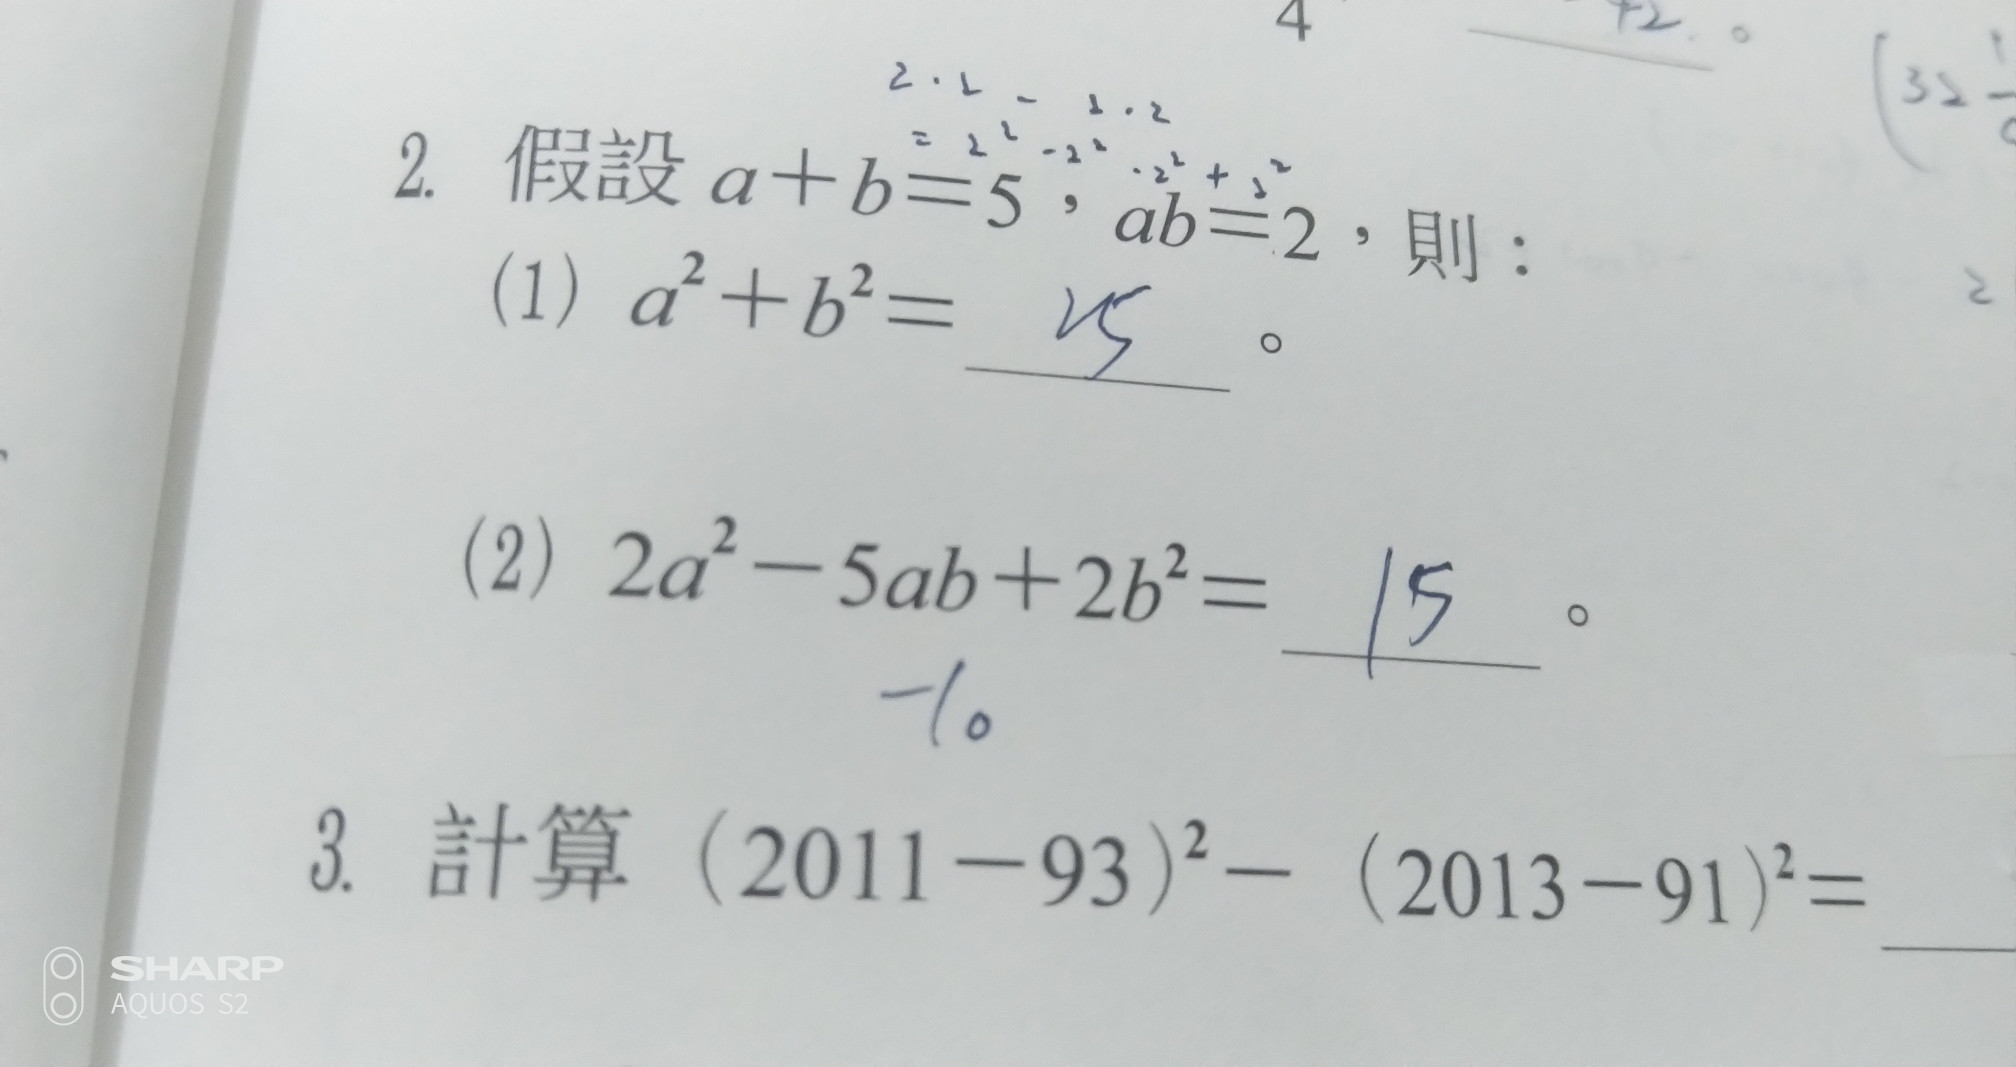 4 +2 。
2 · 1 - 1 · 2
= 2² -2² · 2² + 1²
2. 假設 a+b=5,ab=2,則:
(1) a²+b²= 25 。
(2) 2a²-5ab+2b²= 15 。
-10
3. 計算(2011-93)²-(2013-91)²=
SHARP
AQUOS S2